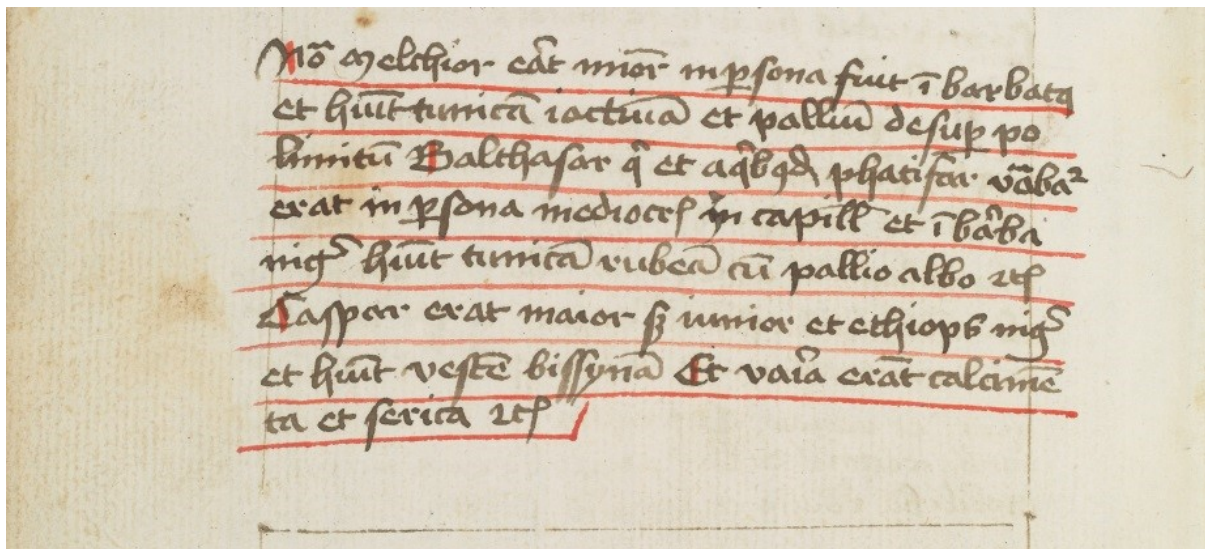 Nō Melchior erāt mīor in ꝑsona fuit ī barbatꝯ
et hūit tunicā iactinā et palliū desuꝑ po
limitū Balthasar et phatifar
erat in ꝑsona mediocrꝭ in capill̄ et ī barba
nigꝰ hūit tunicā rubeā cū pallio albo ⁊cꝭ
Caspar erat maior sꝫ iunior et ethiops nigꝰ
et hūit vestē bissynā Et varia erāt calcimē
ta et serica ⁊cꝭ